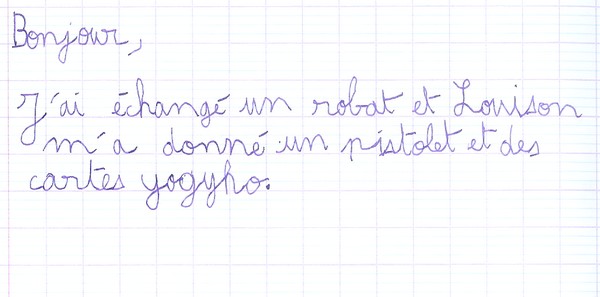 Bonjour,
J'ai échangé un robat et Louison
m'a donné un pistolet et des
cartes yogyho.